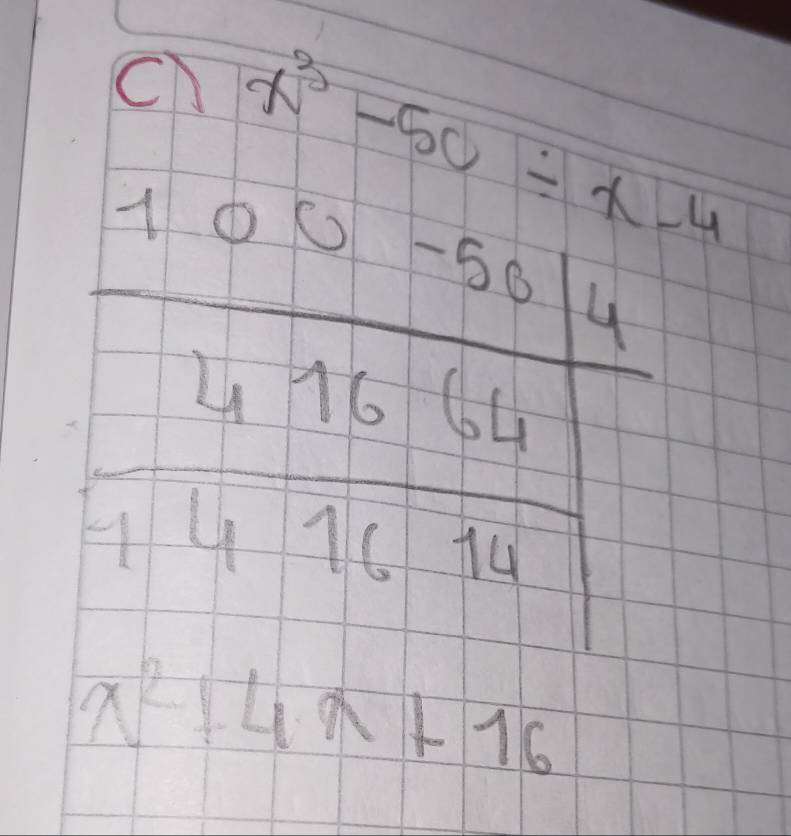 c) x³ -50 ÷ x-4
1 0 0 -50 | 4
4 16 64
1 4 16 14
x² + 4x + 16